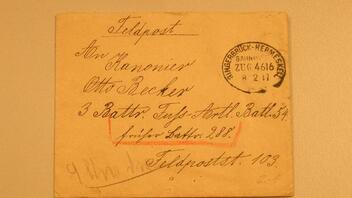 Feldpost
An
Kanonier
Otto Becker
3 Battr. Fuss-Artl. Batl. 54
früher Battr. 288.
Feldpostst. 103.
BINGERBRÜCK-HERMESKEIL
BAHNPOST
ZUG 4616
8 2 17
9